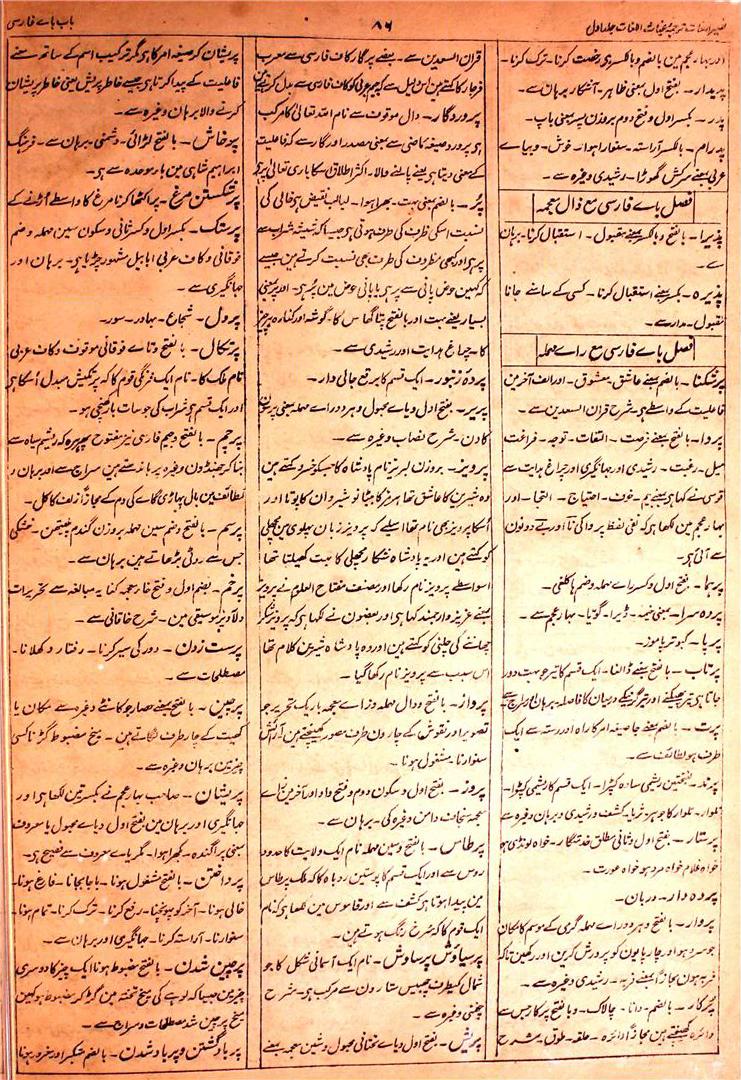 نصیر اللغات ترجمہ غیاث اللغات جلد اول
۸۶
باب باے فارسی
اور بہار عجم مین بالضم و بالکسر ہی رخصت کرنا۔ ترک کرنا۔
پدیدار۔ بفتح اول بمعنی ظاہر۔ آشکار برہان سے۔
پدر۔ بکسر اول و فتح دوم بروزن پسر بمعنی باپ۔
پدرام۔ بالکسر آراستہ۔ سنوارا ہوا۔ خوش۔ و بباے
عربی بمعنے سرکش گھوڑا۔ رشیدی وغیرہ سے۔
فصل باے فارسی مع ذال معجمہ
پذیرا۔ بالفتح و بالکسر بمعنے مقبول۔ استقبال کرنا۔ برہان
سے۔
پذیرہ۔ بکسر بمعنے استقبال کرنا۔ کسی کے سامنے جانا
مقبول۔ مدار سے۔
فصل باے فارسی مع راے مہملہ
بالضم بمعنے عاشق۔ معشوق۔ اور الف آخر مین
فاعلیت کے واسطے ہی۔ شرح قران السعدین سے۔
پروا۔ بالفتح بمعنے فرصت۔ التفات۔ توجہ۔ فراغت
میل۔ رغبت۔ رشیدی اور جہانگیری اور چراغ ہدایت سے
قوسی نے کہا ہی بمعنے بیم۔ خوف۔ احتیاج۔ التجا۔ اور
بہار عجم مین لکھا ہی کہ نفی لفظ پروا کی نا اور بے دونون
سے آتی ہی۔
بفتح اول و کسر راے مہملہ و ضم ہا کلغی۔
پردہ سرا۔ بمعنی خیمہ۔ ڈیرا۔ گویا۔ بہار عجم سے۔
پرپا۔ کبوتر پاموز۔
پرتاب۔ بالفتح بمعنے ڈالنا۔ ایک قسم کا تیر جو بہت دور
جاتا ہی تیر پھینکنے اور تیر گرنیکے درمیان کا فاصلہ۔ برہان سراج سے
پرت۔ بالضم بمعنے جا صیغہ امر کا راہ اور رستہ سے ایک
طرف ہو لطائف سے۔
پرند۔ بفتحتین ریشمی سادہ کپڑا۔ ایک قسم کا ریشمی کپڑا۔
تلوار۔ تلوار کا جوہر۔ ثریا۔ کشف و رشیدی و برہان وغیرہ سے
پرستار۔ بفتح اول و ثانی مطلق خدمتگار۔ خواہ لونڈی ہو
خواہ غلام خواہ مرد ہو خواہ عورت۔
پردہ دار۔ دربان۔
پروار۔ بالفتح و ہر دو راے مہملہ گرمی کے موسم کا مکان
جو سرد ہو اور چارپایون کو پرورش کرین اور رکھین تاکہ
فربہ ہون مجازاً بمعنے فربہ۔ رشیدی وغیرہ سے۔
پرکار۔ بالضم۔ دانا۔ چالاک۔ و بالفتح پرکار جس سے
دائرہ کھینچتے ہین مجازاً دائرہ۔ حلقہ۔ طوق۔ شرح
قران السعدین سے۔ بعضے پرگار کاف فارسی سے معرب
فرجار کا کہتے ہین اس دلیل سے کہ جیم عربی کو کاف فارسی سے بدل کرتے ہین
پروردگار۔ دال موقوف سے نام اللہ تعالی کا مرکب
ہی پرورد صیغہ ماضی سے بمعنی مصدر اور گار سے کہ فاعلیت
کے معنی دیتا ہی یعنے پالنے والا۔ اکثر اطلاق اسکا باری تعالی پر ہی
پُر۔ بالضم بمعنی بہت۔ بھرا ہوا۔ لبالب نقیض ہی خالی کی
نسبت اسکی ظرف کی طرف ہوتی ہی جیسا کہ شیشہ شراب سے
پر ہی اور کبھی مظروف کی طرف بھی نسبت کرتے ہین جیسے
کہ کہین حوض پانی سے پر ہی یا پانی حوض مین پر ہی۔ اور پر بمعنی
بسیار یعنے بہت اور بالفتح پتا گھاس کا۔ گوشہ اور کنارہ ہر چیز
کا۔ چراغ ہدایت اور رشیدی سے۔
پردۂ زنبور۔ ایک قسم کا برقع جالی دار۔
پریر۔ بفتح اول و یاے مجہول و ہر دو راے مہملہ بمعنی پرسون
کا دن۔ شرح نصاب وغیرہ سے۔
پرویز۔ بروزن لبریز نام بادشاہ کا جسکو خسرو کہتے ہین
وہ شیرین کا عاشق تھا ہرمز کا بیٹا نوشیروان کا پوتا اور
اسکا پرویز بھی نام تھا اسلیے کہ پرویز زبان پہلوی مین مچھلی
کو کہتے ہین اور یہ بادشاہ شکار مچھلی کا بہت کھیلتا تھا
اسواسطے پرویز نام رکھا اور مصنف مفتاح العلوم نے پرویز
بمعنے عزیز و ارجمند کہا ہی اور بعضون نے لکھا ہی کہ پرویز شکر
چھاننے کی چلنی کو کہتے ہین اور وہ بادشاہ شیرین کلام تھا
اس سبب سے پرویز نام رکھا گیا۔
پرداز۔ بالفتح و دال مہملہ و زاے معجمہ باریک تحریر جو
تصویر اور نقوش کے چارون طرف مصور کھینچتے ہین آرائش
سنوارنا۔ مشغول ہونا۔
پروز۔ بفتح اول و سکون دوم و فتح واو اور آخر مین زاے
معجمہ سنجاف دامن وغیرہ کی۔ برہان سے۔
پرطاس۔ بالفتح و سین مہملہ نام ایک ولایت کا حدود
روس سے اور ایک قسم کا پوستین روباہ کا کہ ملک پرطاس
مین پیدا ہوتا ہی کشف سے اور قاموس مین لکھا ہی کہ نام
ایک قوم کا کہ سرخ رنگ ہوتے ہین۔
پرسیاوش پرساوش۔ نام ایک آسمانی شکل کا جو
شمال کیطرف چھبیس ستارون سے مرکب ہی۔ شرح
چغمنی وغیرہ سے۔
پریش۔ بفتح اول و یاے تحتانی مجہول و شین معجمہ بمعنے
پریشان کر صیغہ امر کا ہی مگر ترکیب اسم کے ساتھ معنے
فاعلیت کے پیدا کرتا ہی جیسے خاطر پریش یعنی خاطر پریشان
کرنے والا برہان وغیرہ سے۔
پرخاش۔ بالفتح لڑائی۔ دشمنی۔ برہان سے۔ فرہنگ
ابراہیم شاہی مین بار موحدہ سے ہی۔
پر شکستن مرغ۔ پر اکٹھا کرنا مرغ کا واسطے اڑنے کے
پرستک۔ بکسر اول و کسر ثانی و سکون سین مہملہ و ضم
فوقانی و کاف عربی ابابیل مشہور چڑیا ہی۔ برہان اور
جہانگیری سے۔
پردل۔ شجاع۔ بہادر۔ سور۔
پرتکال۔ بالضم و تاے فوقانی موقوف و کاف عربی
نام ملک کا۔ نام ایک فرنگی قوم کا کہ پرتکیش مبدل اسکا ہی
اور ایک قسم ہی شراب کی جو سات بار کھنچی ہو۔
پرچم۔ بالفتح و جیم فارسی نیز مفتوح پھریرہ کہ ریشم سیاہ سے
بنا کر جھنڈون وغیرہ پر باندھتے ہین سراج سے اور برہان و
لطائف مین بال پہاڑی گاے کی دم کے مجازاً زلف کاکل۔
پرسم۔ بالفتح و ضم سین مہملہ بروزن گندم پلیتھن۔ خشکی
جس سے روٹی بڑھاتے ہین برہان سے۔
پرخم۔ بضم اول و فتح خار معجمہ کنایہ مبالغہ سے تحریرات
دلاویز موسیقی مین۔ شرح خاقانی سے۔
پرست زدن۔ دور کی سیر کرنا۔ رفتار دکھلانا۔
مصطلحات سے۔
پرچین۔ بالفتح بمعنے حصار جو کانٹے وغیرہ سے مکان یا
کھیت کے چار طرف لگاتے ہین۔ میخ مضبوط گڑنا کسی
چیز مین برہان وغیرہ سے۔
پریشان۔ صاحب بہار عجم نے بکسرتین لکھا ہی اور
جہانگیری اور برہان مین بفتح اول و یاے مجہول یا معروف
بمعنی پراگندہ۔ بکھرا ہوا۔ مگر یاے معروف سے فصیح ہی۔
پرداختن۔ بالفتح مشغول ہونا۔ باجا بجانا۔ فارغ ہونا۔
خالی ہونا۔ آخر کو پہونچنا۔ رفع کرنا۔ ترک کرنا۔ تمام ہونا۔
سنوارنا۔ آراستہ کرنا۔ جہانگیری اور برہان سے۔
پرچین شدن۔ بالفتح مضبوط ہونا ایک چیز کا دوسری
چیز مین جیسا کہ لوہے کی میخ تختہ مین گڑ کر مضبوط ہو کہین
میخ پرچین شد مصطلحات و سراج سے۔
پر باد گشتن و پر باد شدن۔ بالضم متکبر اور مغرور ہونا